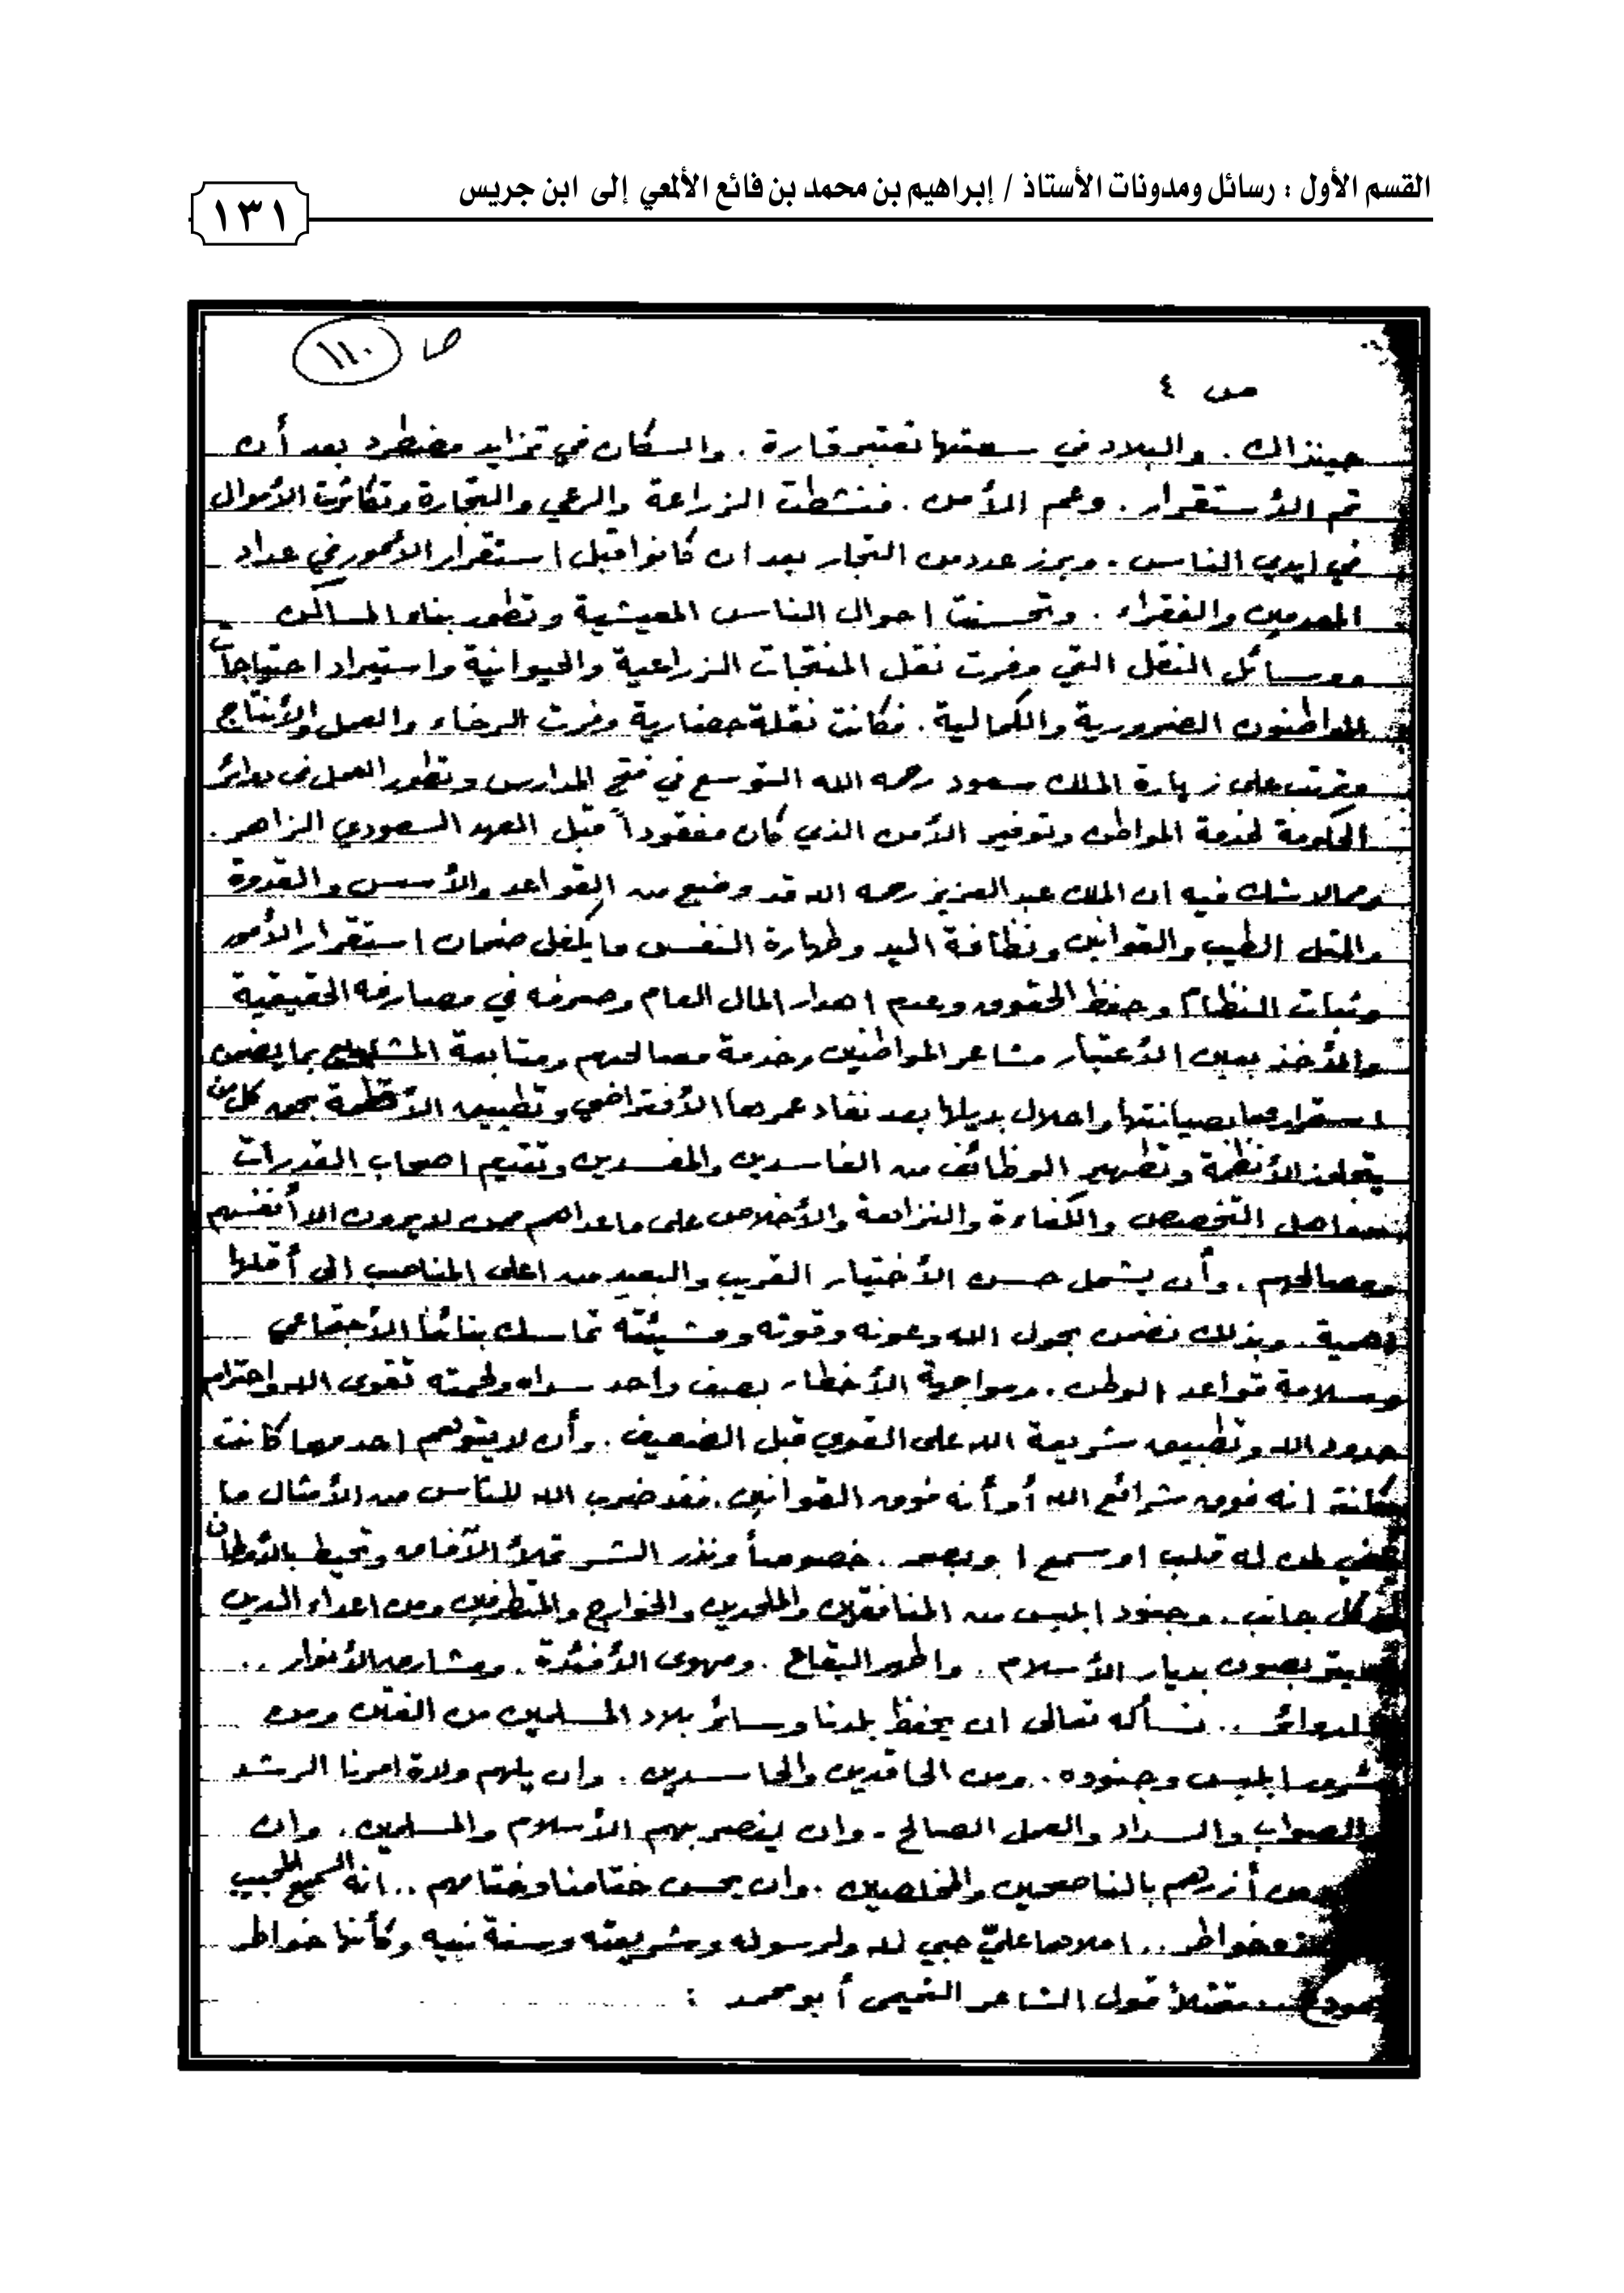 القسم الأول : رسائل ومدونات الأستاذ / إبراهيم بن محمد بن فائع الألمعي إلى ابن جريس
١٣١
ص ١١٠
ص ٤
حينذاك . والبلاد في سعتها تعتبر قارة . والسكان في تزايد مضطرد بعد أن
تم الأستقرار . وعم الأمن . فنشطت الزراعة والرعي والتجارة وتكاثرت الأموال
في ايدي الناس . وبرز عدد من التجار بعد ان كانوا قبل استقرار الأمور في عداد
المعدمين والفقراء . وتحسنت احوال الناس المعيشية وتطور بناء المساكن
ووسائل النقل التي وفرت نقل المنتجات الزراعية والحيوانية واستيراد احتياجات
المواطنون الضرورية والكمالية . فكانت نقلة حضارية وفرت الرخاء والعمل والأنتاج
وترتب على زيارة الملك سعود رحمه الله التوسع في فتح المدارس وتطور العمل في دوائر
الحكومة لخدمة المواطن وتوفير الأمن الذي كان مفقوداً قبل العهد السعودي الزاهر .
ومما لا شك فيه ان الملك عبد العزيز رحمه الله قد وضع من القواعد والأسس والقدوة
والمثل الطيب والقوانين ونظافة اليد وطهارة النفس ما يكفل ضمان استقرار الأمور
وثبات النظام وحفظ الحقوق وعدم اهدار المال العام وصرفه في مصارفه الحقيقية
والأخذ بعين الأعتبار مشاعر المواطنين وخدمة مصالحهم ومتابعة المشاريع بما يضمن
استمرارها بصيانتها واحلال بديلها بعد نفاد عمرها الأفتراضي وتطبيق الأنظمة بحق كل من
يتجاوز الأنظمة وتطهير الوظائف من الفاسدين والمفسدين وتقديم اصحاب القدرات
التخصص والكفاءة والنزاهة والأخلاص على ما عداهم ممن لا يرون الا أنفسهم
ومصالحهم . وأن يشمل حسن الأختيار القريب والبعيد من اعلى المناصب الى أقلها
اهمية . وبذلك نضمن بحول الله وعونه وقوته ومشيئته تماسك بنائنا الأجتماعي
وسلامة قواعد الوطن . ومواجهة الأخطار بصف واحد سداه ولحمته تقوى الله واحترام
حدود الله وتطبيق شريعة الله على القوي قبل الضعيف . وأن لا يتوهم احد مهما كانت
مكانته انه فوق شرائع الله أو أنه فوق القوانين . فقد ضرب الله للناس من الأمثال ما
يكفي لمن له قلب او سمع او بصر . خصوصاً ونذر الشر تملأ الآفاق وتحيط بالأوطان
من كل جانب . وجنود ابليس من المنافقين والملحدين والخوارج والمتطرفين ومن اعداء الدين
يتربصون بديار الأسلام . واطهر البقاع . ومهوى الأفئدة . ومشارق الأنوار ..
الدوائر .. نسأله تعالى ان يحفظ بلدنا وسائر بلاد المسلمين من الفتن ومن
شرور ابليس وجنوده . ومن الحاقدين والحاسدين . وان يلهم ولاة امرنا الرشد
والصواب والسداد والعمل الصالح . وان ينصر بهم الأسلام والمسلمين . وان
أزرهم بالناصحين والمخلصين . وان يحسن ختامنا وختامهم .. انه السميع المجيب
خواطر .. املاها عليّ حبي لله ولرسوله وشريعته وسنة نبيه وكأنها خواطر
مودع متمثلاً قول الشاعر التميمي أبو محمد :